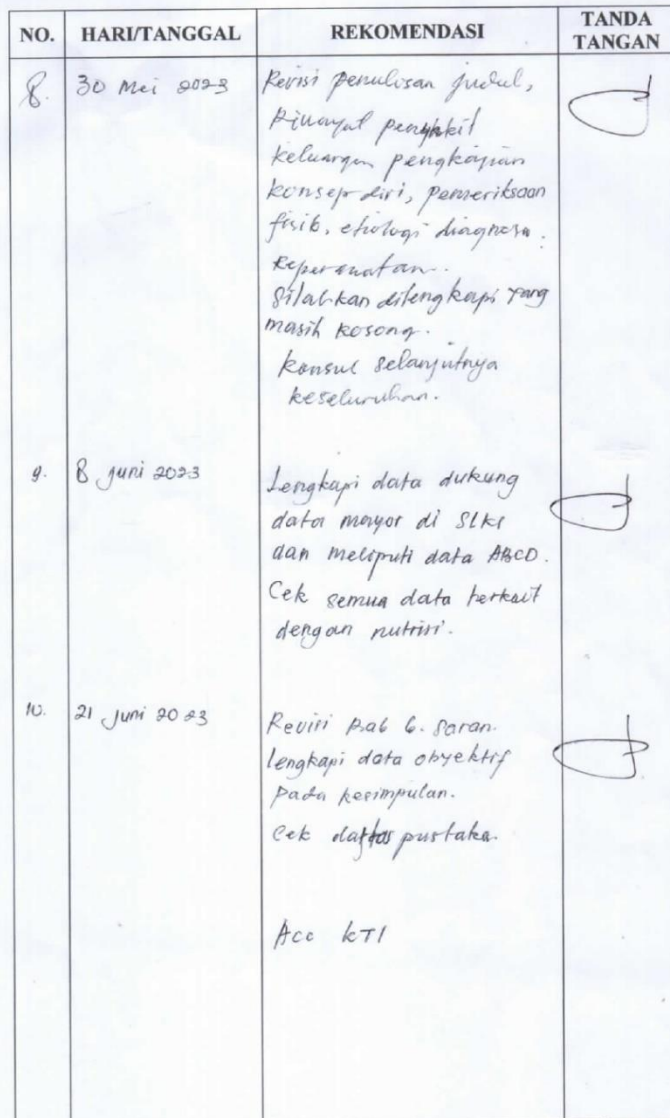 NO. HARI/TANGGAL REKOMENDASI TANDA TANGAN
8. 30 Mei 2023 Revisi penulisan judul,
Riwayat penyakit
keluarga pengkajian
konsep diri, pemeriksaan
fisik, etiologi diagnosa
keperawatan.
Silahkan dilengkapi yang
masih kosong.
konsul selanjutnya
keseluruhan.
9. 8 Juni 2023 Lengkapi data dukung
data mayor di SLKI
dan meliputi data ABCD.
Cek semua data terkait
dengan nutrisi.
10. 21 Juni 2023 Revisi Bab 6. Saran.
lengkapi data obyektif
pada kesimpulan.
Cek daftar pustaka.
Acc KTI